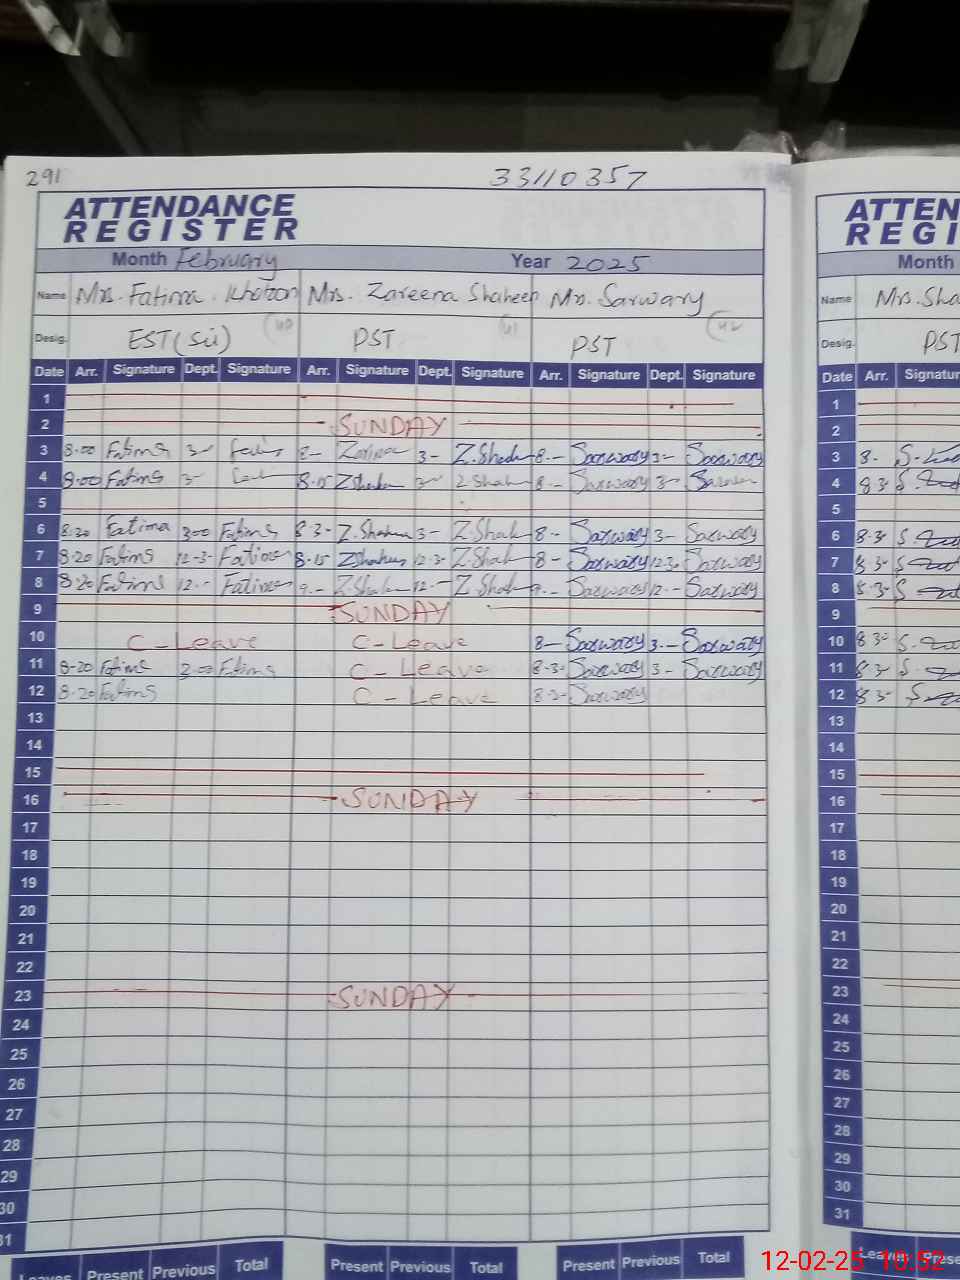 291
33110357
ATTENDANCE
REGISTER
Month February Year 2025
Name Mrs. Fatima. Khatoon Mrs. Zareena Shaheen Mrs. Sarwary
Desig. EST(Sci) 40 PST 41 PST 42
Date Arr. Signature Dept. Signature Arr. Signature Dept. Signature Arr. Signature Dept. Signature
1
2 SUNDAY
3 8.00 Fatima 3- 8- Zarina 3- Z.Shaheen 8- Sarwary 3- Sarwary
4 8.00 Fatima 3- 8.15 ZShaheen 3- Z Shaheen 8- Sarwary 3-
5
6 8.20 Fatima 3.00 Fatima 8.3- Z.Shaheen 3- Z.Shaheen 8- Sarwary 3- Sarwary
7 8.20 Fatima 12-3- Fatima 8.15 ZShaheen 12.3- Z.Shaheen 8- Sarwary 12.3- Sarwary
8 8.20 Fatima 12.- Fatima 9.- Z.Shaheen 12.- Z.Shaheen 9.- Sarwary 12.- Sarwary
9 SUNDAY
10 C-Leave C-Leave 8- Sarwary 3.- Sarwary
11 8.20 Fatima 2.00 Fatima C-Leave 8.3- Sarwary 3- Sarwary
12 8.20 Fatima C-Leave 8.3- Sarwary
13
14
15
16 SUNDAY
17
18
19
20
21
22
23 SUNDAY
24
25
26
27
28
29
30
31
Leaves Present Previous Total Present Previous Total Present Previous Total
ATTEN
REGI
Month
Name Mrs. Sha
Desig. PST
Date Arr. Signatur
1
2
3 8.
4 8.3-
5
6 8.3-
7 8.3-
8 8.3-
9
10 8.3-
11 8.3-
12 8.3-
13
14
15
16
17
18
19
20
21
22
23
24
25
26
27
28
29
30
31
Leaves Prese
12-02-25 10:52